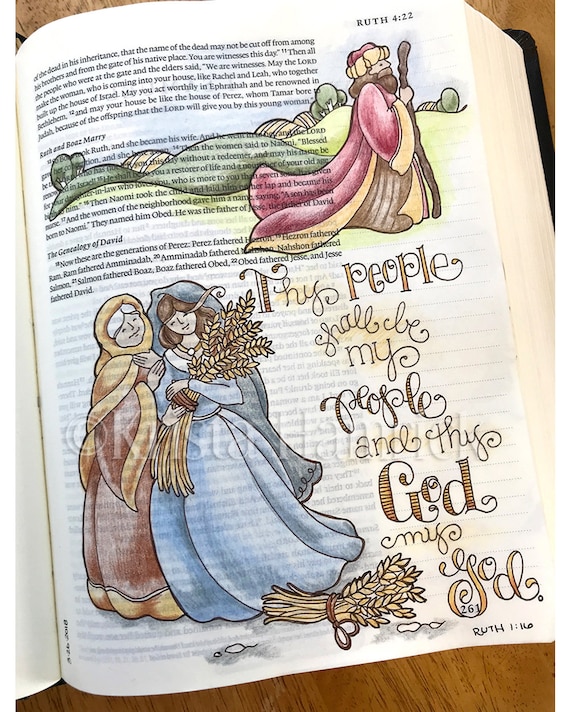 RUTH 4:22
of the dead in his inheritance, that the name of the dead may not be cut off from among
his brothers and from the gate of his native place. You are witnesses this day." ¹¹Then all
the people who were at the gate and the elders said, "We are witnesses. May the LORD
make the woman, who is coming into your house, like Rachel and Leah, who together
built up the house of Israel. May you act worthily in Ephrathah and be renowned in
Bethlehem, ¹²and may your house be like the house of Perez, whom Tamar bore to
Judah, because of the offspring that the LORD will give you by this young woman."
Ruth and Boaz Marry
took Ruth, and she became his wife. And he went in to her, and the LORD
conception, and she bore a son. ¹⁴Then the women said to Naomi, "Blessed
be the LORD, who has not left you this day without a redeemer, and may his name be
in Israel! ¹⁵He shall be to you a restorer of life and a nourisher of your old age,
daughter-in-law who loves you, who is more to you than seven sons, has given
him." ¹⁶Then Naomi took the child and laid him on her lap and became his
nurse. ¹⁷And the women of the neighborhood gave him a name, saying, "A son has been
born to Naomi." They named him Obed. He was the father of Jesse, the father of David.
The Genealogy of David
¹⁸Now these are the generations of Perez: Perez fathered Hezron, ¹⁹Hezron fathered
Ram, Ram fathered Amminadab, ²⁰Amminadab fathered Nahshon, Nahshon fathered
Salmon, ²¹Salmon fathered Boaz, Boaz fathered Obed, ²²Obed fathered Jesse, and Jesse
fathered David.
Thy people
shall be
my
people
and thy
God
my
God.
261
RUTH 1:16
3-26-2018